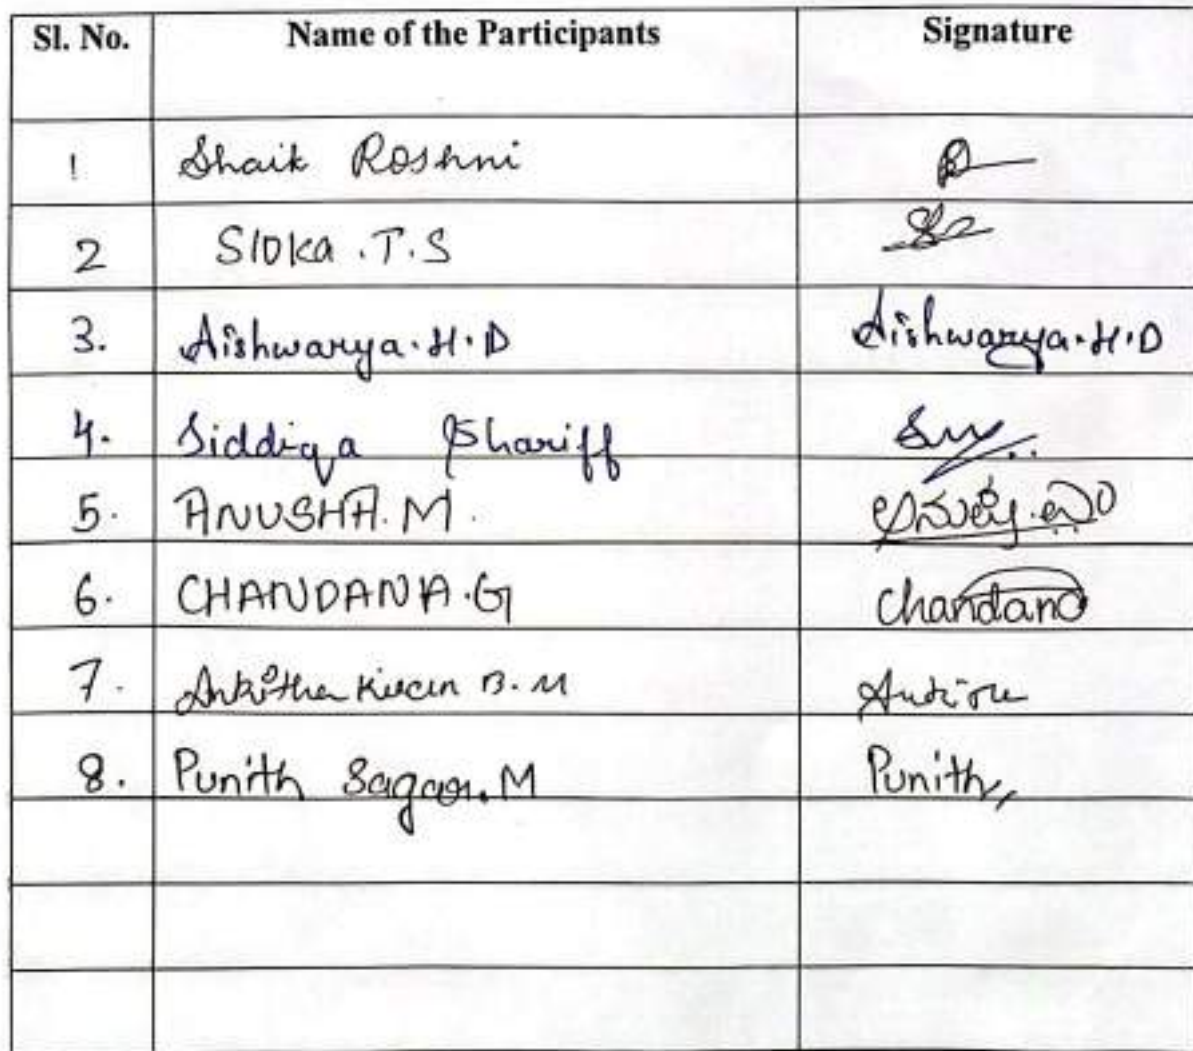 Sl. No. Name of the Participants Signature
1 Shaik Roshni
2 Sloka .T.S
3. Aishwarya.H.D Aishwarya.H.D
4. Siddiqa Shariff
5. ANUSHA.M. ಅನುಷ.ಎಂ
6. CHANDANA.G Chandana
7. Ankitha Kiran B.M
8. Punith Sagar.M Punith